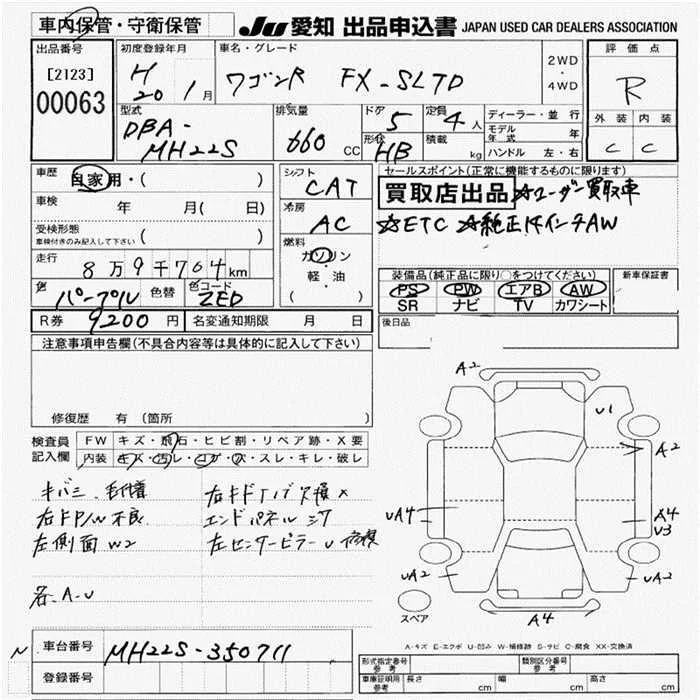 車内保管・守衛保管
JU 愛知 出品申込書 JAPAN USED CAR DEALERS ASSOCIATION
出品番号
[2123]
00063
初度登録年月
H 20 1月
車名・グレード
ワゴンR FX-SLTD
2WD
・
4WD
評価点
R
外装 内装
C C
型式
DBA-
MH22S
排気量
660 CC
ドア 5
定員 4人
形状 HB
積載 kg
ディーラー・並行
モデル年式 年
ハンドル 左・右
車歴 自家用・( )
車検 年 月( 日)
受検形態
車検付きのみ記入して下さい ( )
走行 8万9千704km
色 パープル 色替 色コード ZED
シフト
CAT
冷房
AC
燃料
ガソリン
軽・油
( )
セールスポイント(正常に機能するものに限ります)
買取店出品 ☆ユーザー買取車
☆ETC ☆純正14インチAW
装備品(純正品に限り○をつけてください) 新車保証書
PS PW エアB AW
SR ナビ TV カワシート
R券 9200円 名変通知期限 月 日
後日品
注意事項申告欄(不具合内容等は具体的に記入して下さい)
修復歴 有(箇所
検査員記入欄
FW キズ・飛石・ヒビ割・リペア跡・X要
内装 キズ・汚レ・コゲ・穴・スレ・キレ・破レ
キバミ、毛付着 右キドアバイザー損 X
右FP/W不良 エンドパネル ミワ
左側面 W2 左センターピラー U 修複
各 A-U
A2
U1
A2
UA4
A4
U3
UA2
UA2
A4
スペア
A-キズ E-エクボ U-凹み W-補修跡 S-サビ C-腐食 XX-交換済
N
車台番号 MH22S-350711
登録番号
形式指定番号 参考
類別区分番号 参考
車庫証明用 参考 長さ cm 幅 cm 高さ cm